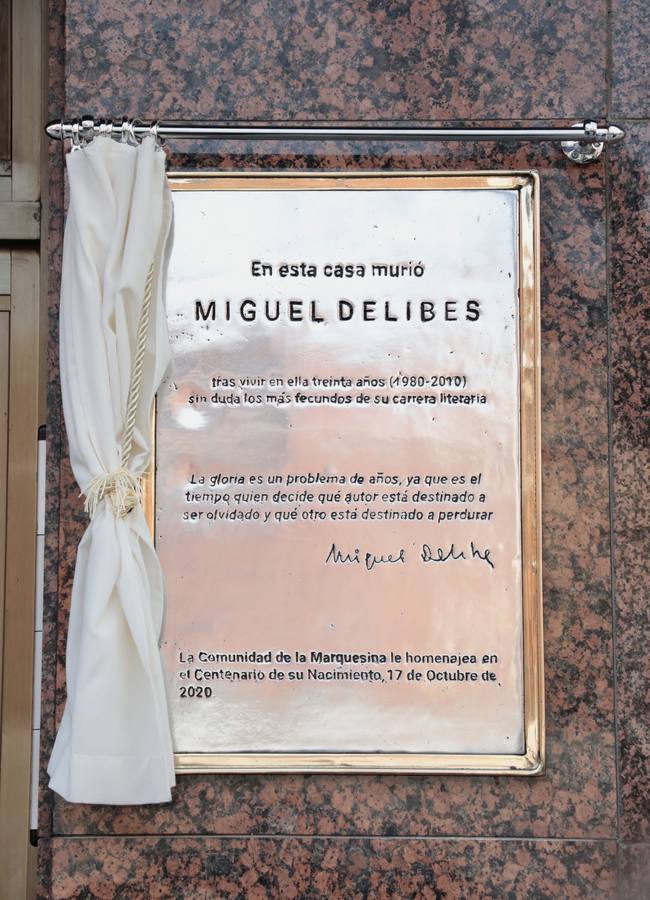 En esta casa murió
MIGUEL DELIBES
tras vivir en ella treinta años (1980-2010)
sin duda los más fecundos de su carrera literaria
La gloria es un problema de años, ya que es el
tiempo quien decide qué autor está destinado a
ser olvidado y qué otro está destinado a perdurar
Miguel Delibes
La Comunidad de la Marquesina le homenajea en
el Centenario de su Nacimiento, 17 de Octubre de
2020